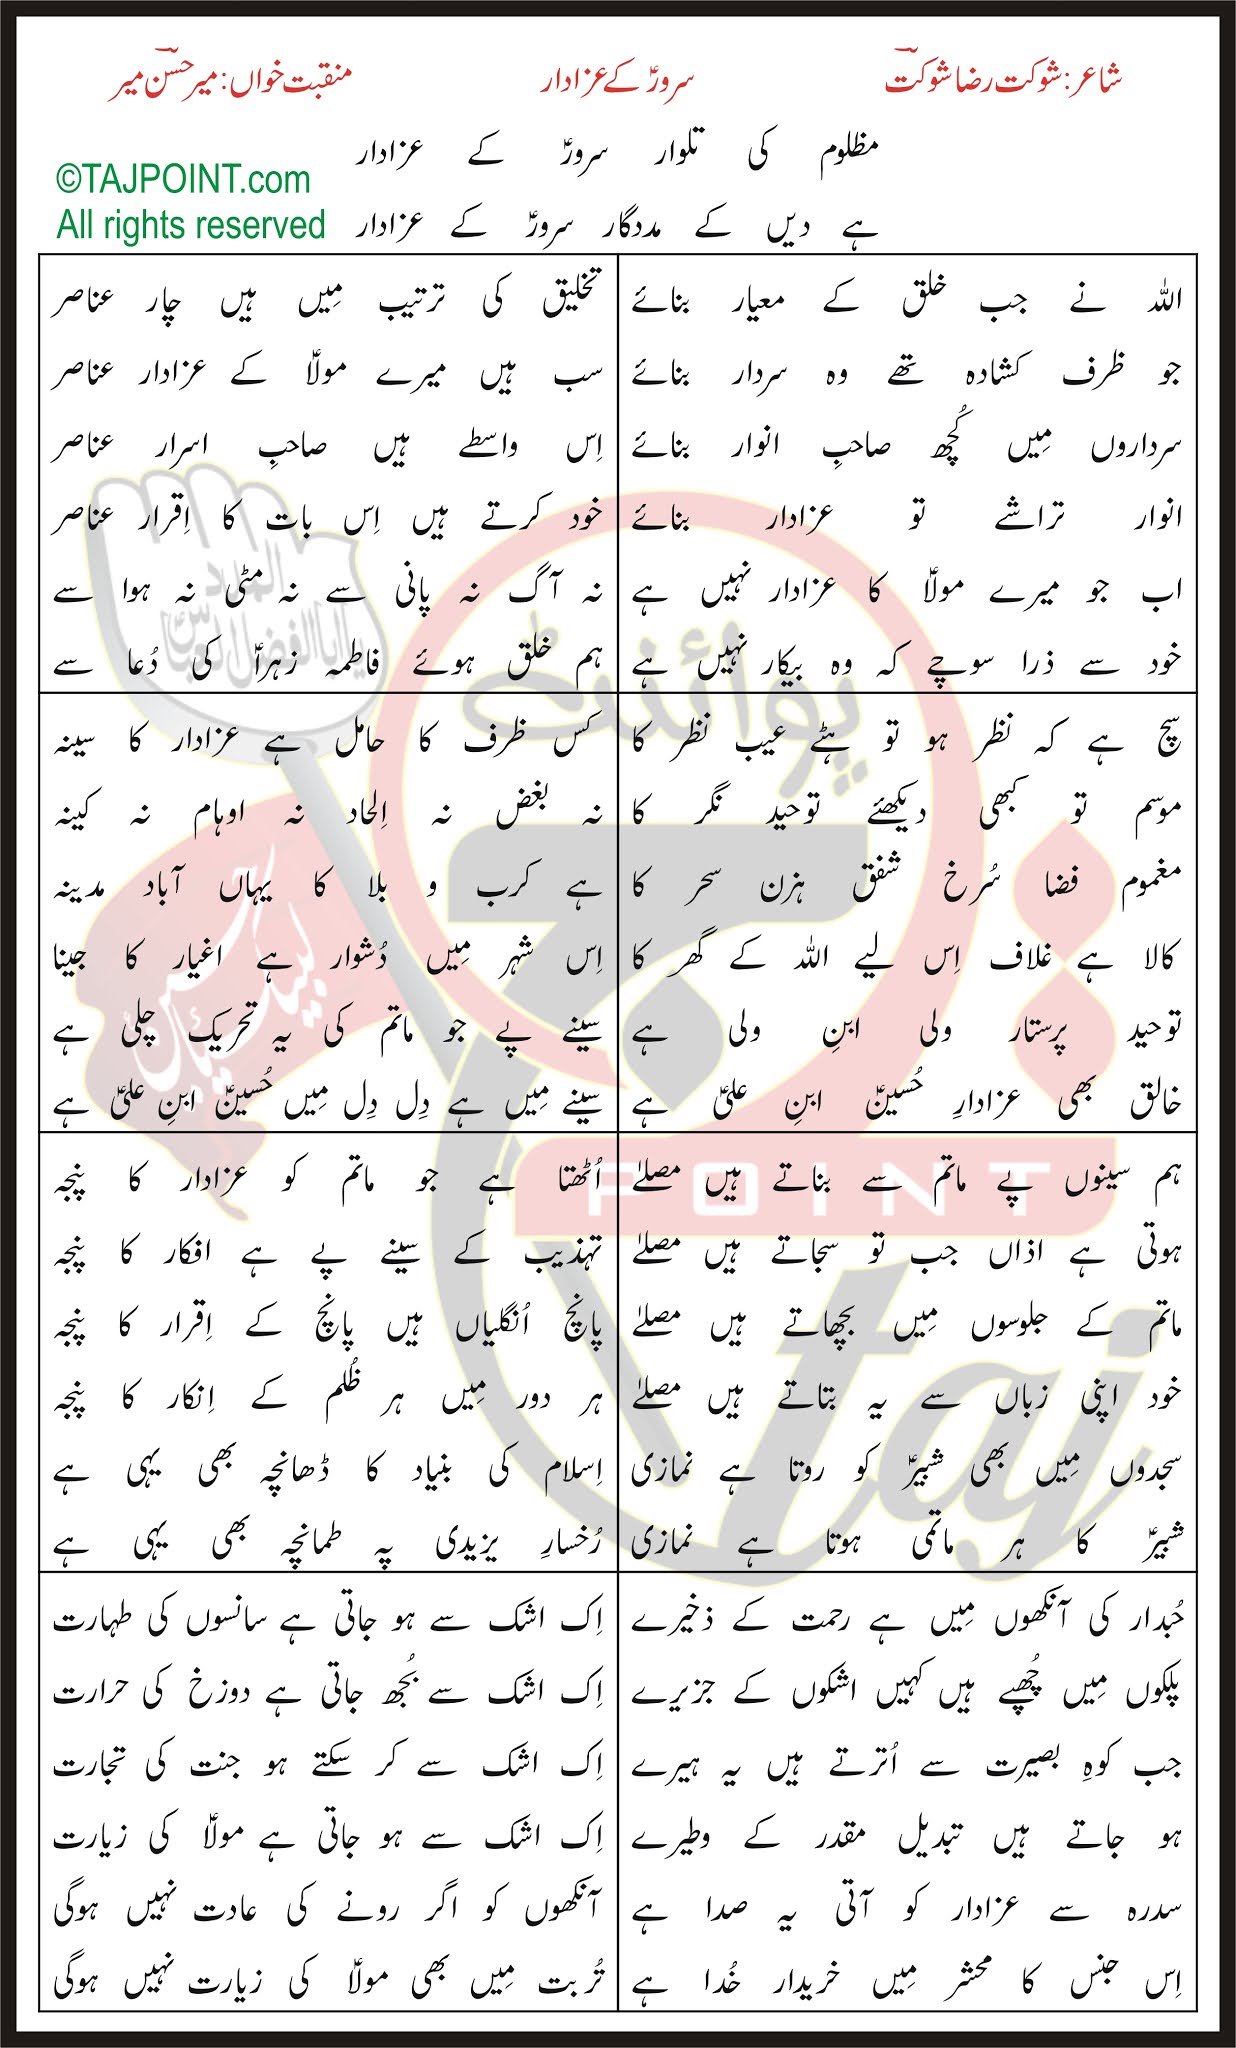 شاعر: شوکت رضا شوکتؔ
سرورؑ کے عزادار
منقبت خواں: میر حسن میرؔ
مظلوم کی تلوار سرورؑ کے عزادار
ہے دیں کے مددگار سرورؑ کے عزادار
©TAJPOINT.com
All rights reserved
اللہ نے جب خلق کے معیار بنائے
جو ظرف کشادہ تھے وہ سردار بنائے
سرداروں مِیں کُچھ صاحبِ انوار بنائے
انوار تراشے تو عزادار بنائے
اب جو میرے مولاؑ کا عزادار نہیں ہے
خود سے ذرا سوچے کہ وہ بیکار نہیں ہے
تخلیق کی ترتیب مِیں ہیں چار عناصر
سب ہیں میرے مولاؑ کے عزادار عناصر
اِس واسطے ہیں صاحبِ اسرار عناصر
خود کرتے ہیں اِس بات کا اِقرار عناصر
نہ آگ نہ پانی سے نہ مٹی نہ ہوا سے
ہم خلق ہوئے فاطمہ زہراؑ کی دُعا سے
سچ ہے کہ نظر ہو تو ہٹے عیب نظر کا
موسم تو کبھی دیکھئے توحید نگر کا
مغموم فضا سُرخ شفق ہزن سحر کا
کالا ہے غلاف اِس لیے اللہ کے گھر کا
توحید پرستار ولی ابنِ ولی ہے
خالق بھی عزادارِ حُسینؑ ابنِ علیؑ ہے
کس ظرف کا حامل ہے عزادار کا سینہ
نہ بغض نہ اِلحاد نہ اوہام نہ کینہ
ہے کرب و بلا کا یہاں آباد مدینہ
اِس شہر مِیں دُشوار ہے اغیار کا جینا
سینے پے جو ماتم کی یہ تحریک چلی ہے
سینے مِیں ہے دِل دِل مِیں حُسینؑ ابنِ علیؑ ہے
ہم سینوں پے ماتم سے بناتے ہیں مصلےٰ
ہوتی ہے اذاں جب تو سجاتے ہیں مصلےٰ
ماتم کے جلوسوں مِیں بچھاتے ہیں مصلےٰ
خود اپنی زباں سے یہ بتاتے ہیں مصلےٰ
سجدوں مِیں بھی شبیرؑ کو روتا ہے نمازی
شبیرؑ کا ہر ماتمی ہوتا ہے نمازی
اُٹھتا ہے جو ماتم کو عزادار کا پنجہ
تہذیب کے سینے پے ہے افکار کا پنجہ
پانچ اُنگلیاں ہیں پانچ کے اِقرار کا پنجہ
ہر دور مِیں ہر ظُلم کے اِنکار کا پنجہ
اِسلام کی بنیاد کا ڈھانچہ بھی یہی ہے
رُخسارِ یزیدی پہ طمانچہ بھی یہی ہے
حُبدار کی آنکھوں مِیں ہے رحمت کے ذخیرے
پلکوں مِیں چُھپے ہیں کہیں اشکوں کے جزیرے
جب کوہِ بصیرت سے اُترتے ہیں یہ ہیرے
ہو جاتے ہیں تبدیل مقدر کے وطیرے
سدرہ سے عزادار کو آتی یہ صدا ہے
اِس جنس کا محشر مِیں خریدار خُدا ہے
اِک اشک سے ہو جاتی ہے سانسوں کی طہارت
اِک اشک سے بُجھ جاتی ہے دوزخ کی حرارت
اِک اشک سے کر سکتے ہو جنت کی تجارت
اِک اشک سے ہو جاتی ہے مولاؑ کی زیارت
آنکھوں کو اگر رونے کی عادت نہیں ہوگی
تُربت مِیں بھی مولاؑ کی زیارت نہیں ہوگی
پوائنٹ
POINT
taj